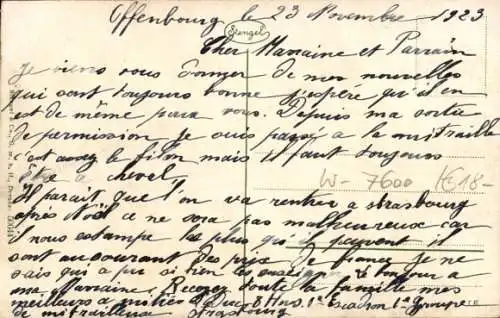 Offenbourg le 23 Novembre 1923
Stengel
Cher Marraine et Parrain
Je viens vous donner de mes nouvelles
qui sont toujours bonne j'espère qu'il en
est de même para vous. Depuis ma sortie
de permission je suis passé a la mitraille
c'est assez le filon mais il faut toujours
être a cheval
W- 7600 €18-
Il parait que l'on va rentrer a strasbourg
après Noël ce ne sera pas malheureux car
il nous estampe le plus qui peuvent il
sont au courant des prix de france je ne
sais qui a pu si bien les Bonjour a
ma Marraine. Recevez toute la famille mes
meilleurs amitiés 8 Hus. 1e Escadron 1e groupe
de mitrailleuse Strasbourg